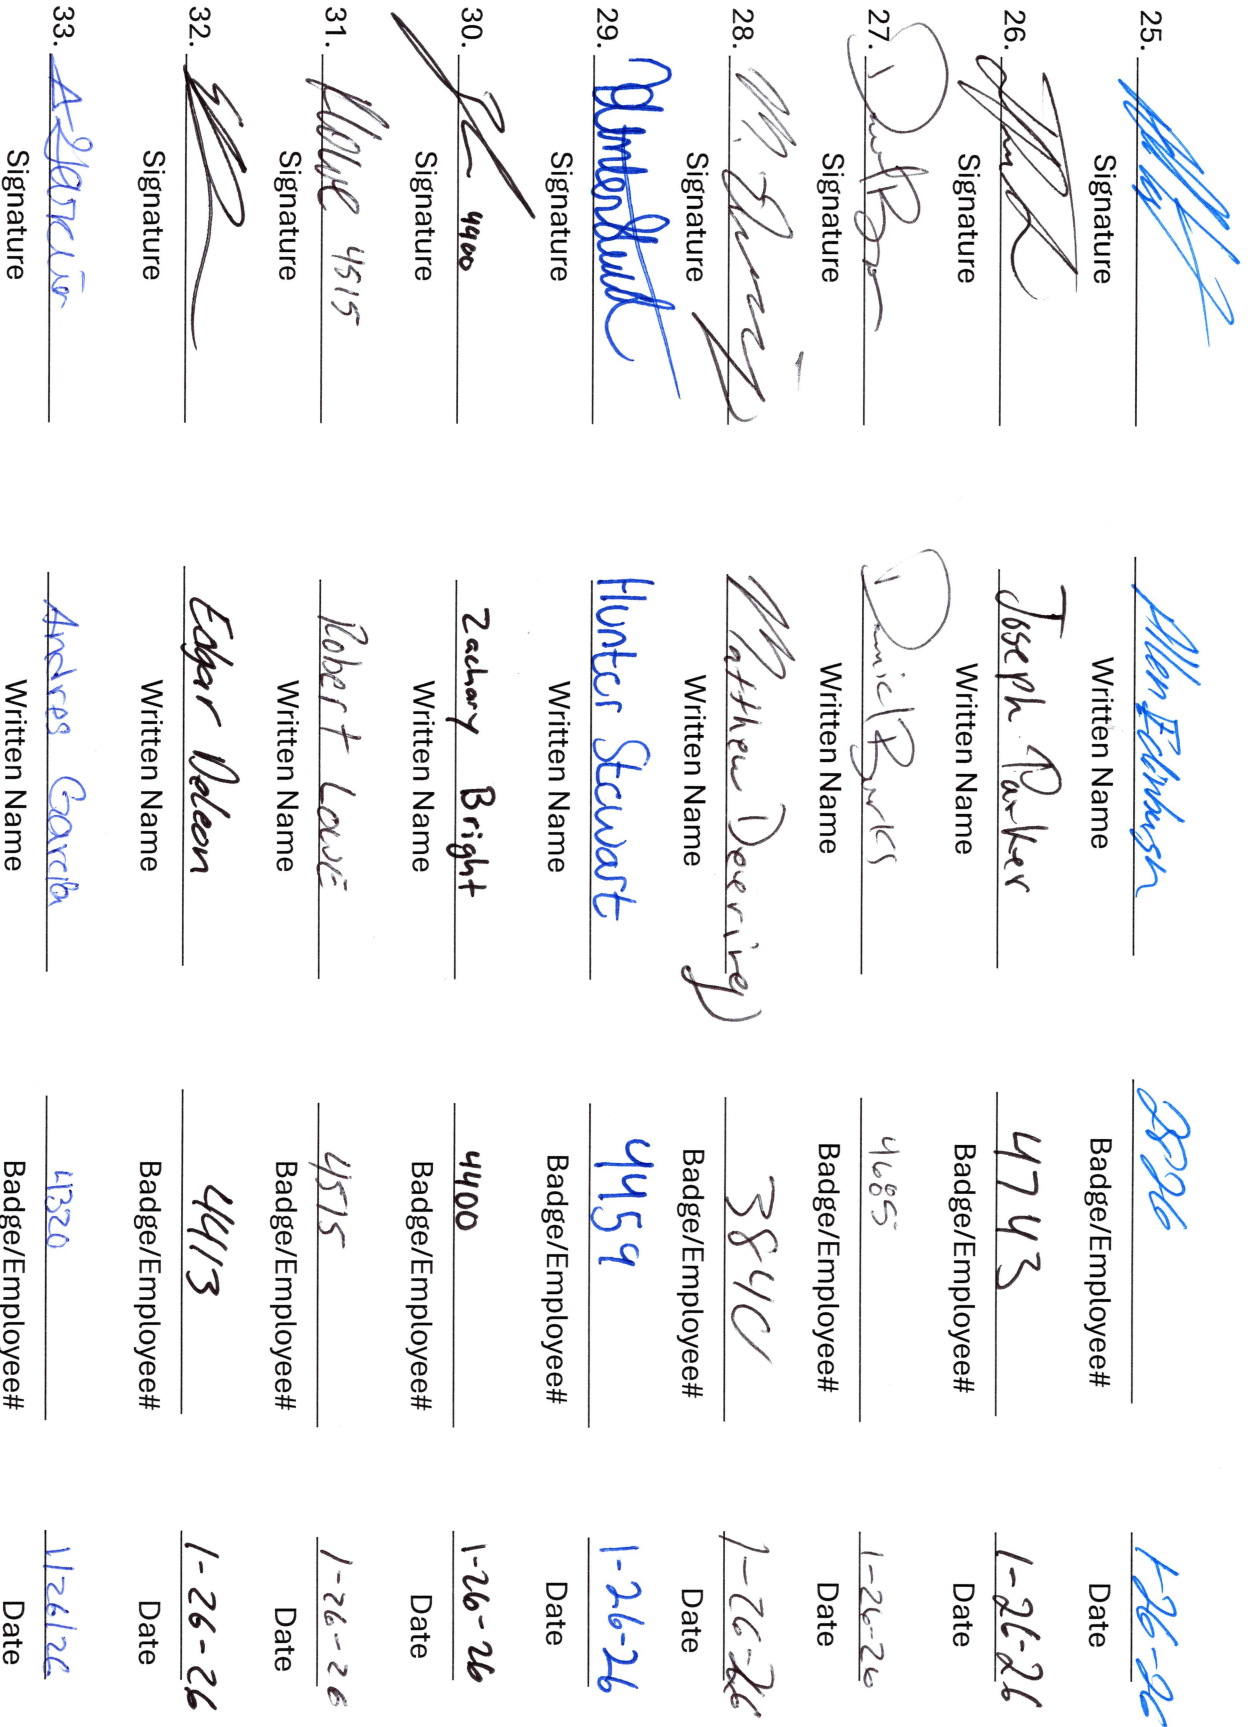 25. Allen Edinburgh 2896 1-26-26
Signature Written Name Badge/Employee# Date
26. Joseph Parker 4743 1-26-26
Signature Written Name Badge/Employee# Date
27. Daniel Burks 4685 1-26-26
Signature Written Name Badge/Employee# Date
28. Matthew Deering 3840 1-26-26
Signature Written Name Badge/Employee# Date
29. Hunter Stewart 4459 1-26-26
Signature Written Name Badge/Employee# Date
30. 4400 Zachary Bright 4400 1-26-26
Signature Written Name Badge/Employee# Date
31. 4515 Robert Lowe 4515 1-26-26
Signature Written Name Badge/Employee# Date
32. Edgar Deleon 4413 1-26-26
Signature Written Name Badge/Employee# Date
33. Andres Garcia 4320 1/26/26
Signature Written Name Badge/Employee# Date